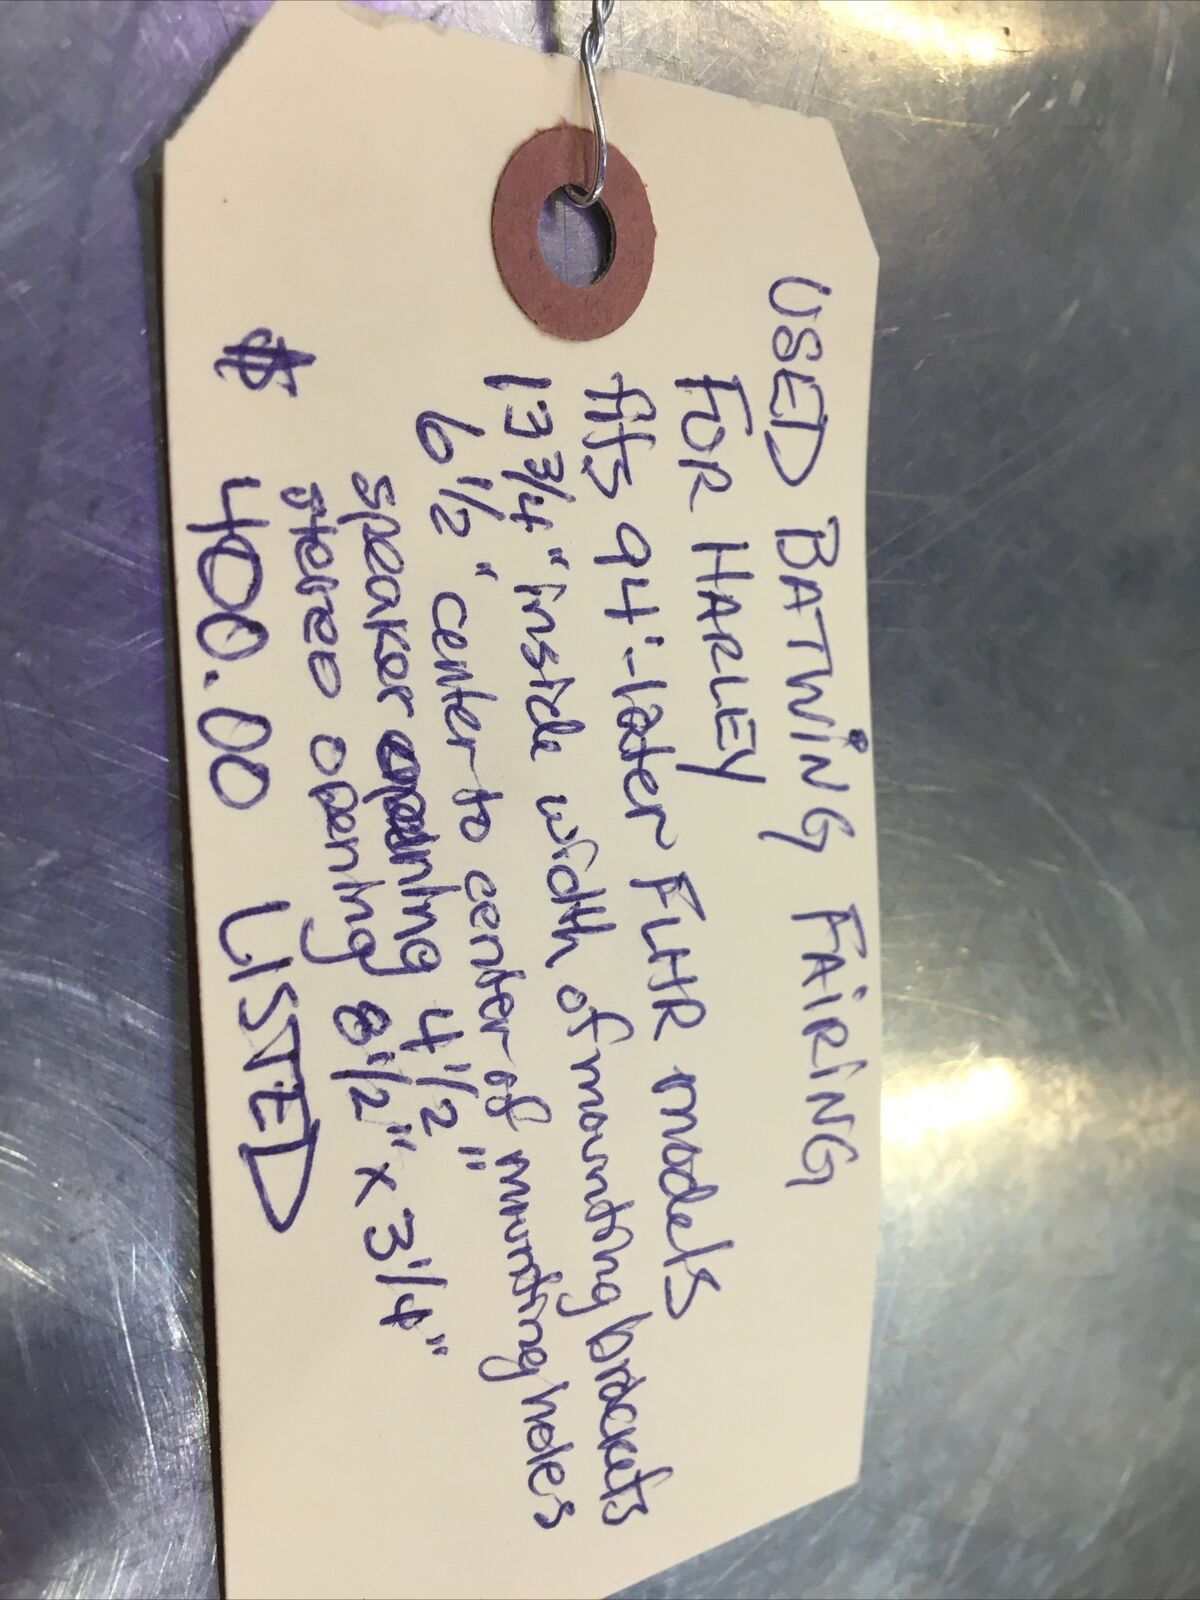 USED BATWiNG FAiRiNG
FOR HARLEY
fits 94'-later FLHR models
13 3/4" inside width of mounting brackets
6 1/2" center to center of mounting holes
speaker opening 4 1/2"
stereo opening 8 1/2" x 3 1/4"
$ 400.00 LISTED